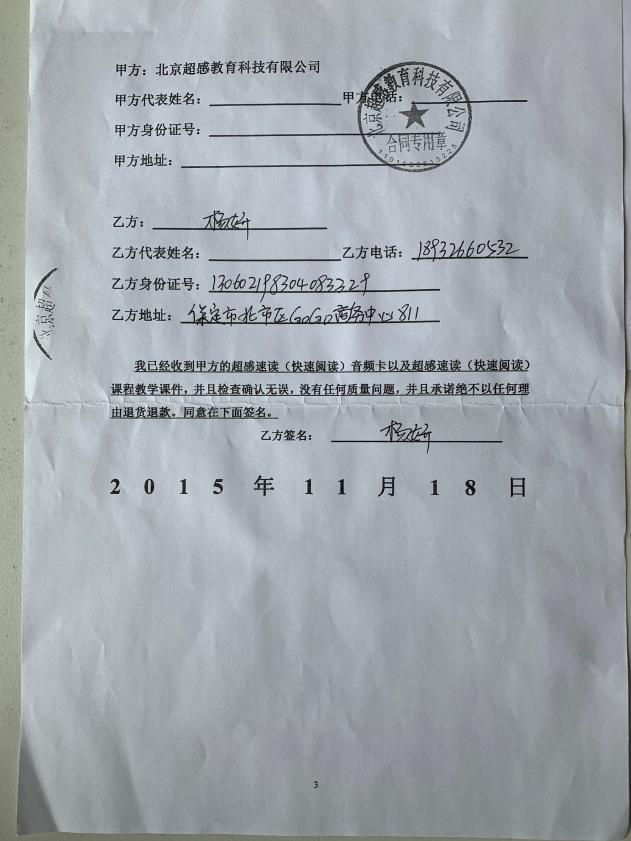 甲方：北京超感教育科技有限公司
甲方代表姓名： 甲方电话：
甲方身份证号：
甲方地址：
北京超感教育科技有限公司
合同专用章
1101080813225
乙方：
乙方代表姓名： 乙方电话：18932660532
乙方身份证号：130602198304083329
乙方地址：保定市北市区GoGo商务中心811
北京超
我已经收到甲方的超感速读（快速阅读）音频卡以及超感速读（快速阅读）
课程教学课件，并且检查确认无误，没有任何质量问题，并且承诺绝不以任何理
由退货退款。同意在下面签名。
乙方签名：
2015年11月18日
3